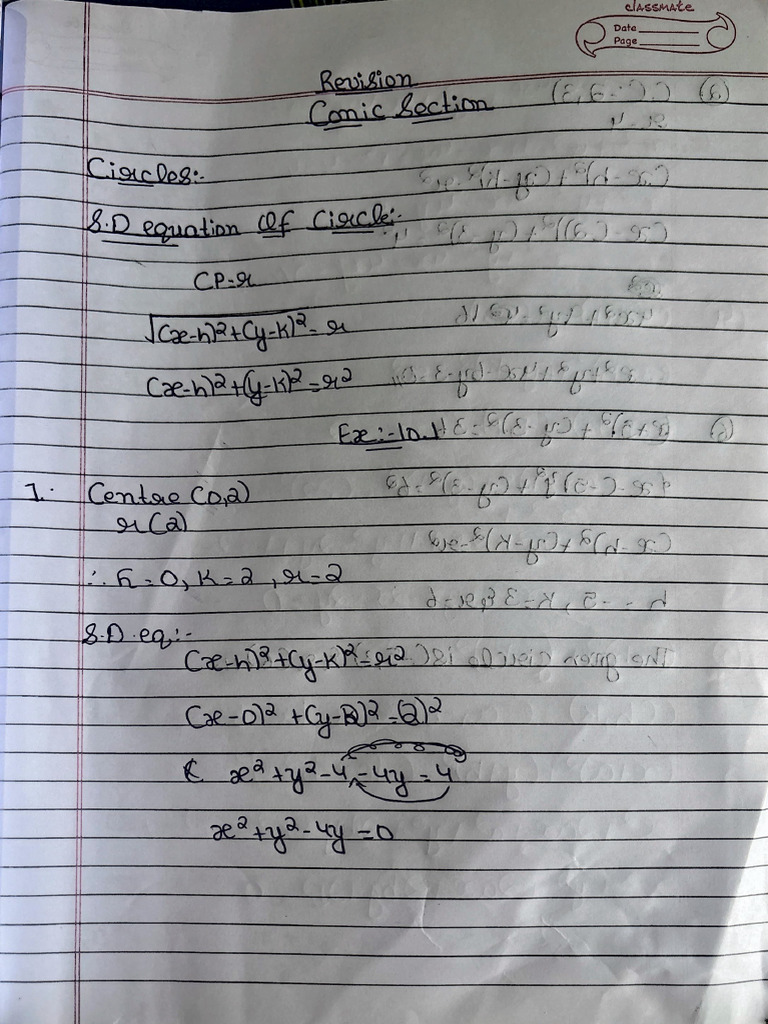 classmate
Date
Page
Revision
Conic Section
Circles:-
S.D equation Of Circle:-
CP=r
√(x-h)2+(y-k)2=r
(x-h)2+(y-k)2=r2
Ex:-10.1
1. Centre (0,2)
r(2)
∴ h=0, K=2, r=2
S.D.eq:-
(x-h)2+(y-k)2=r2
(x-0)2+(y-2)2=(2)2
x2+y2-4-4y=4
x2+y2-4y=0